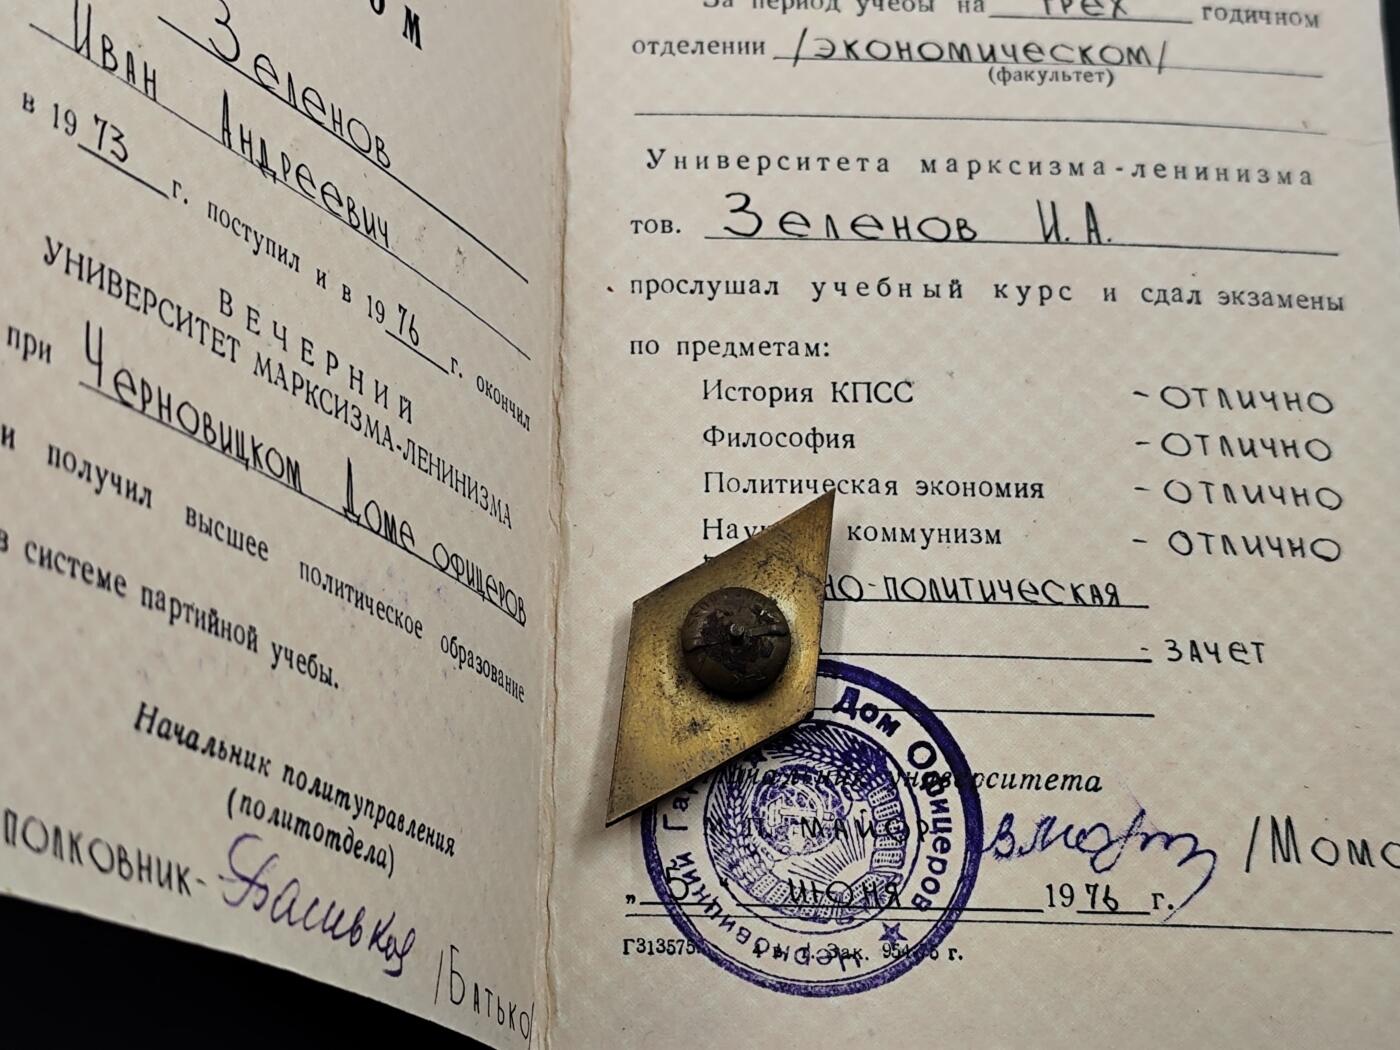 ом
Зеленов
Иван Андреевич
в 1973 г. поступил и в 1976 г. окончил
ВЕЧЕРНИЙ
УНИВЕРСИТЕТ МАРКСИЗМА-ЛЕНИНИЗМА
при Черновицком Доме офицеров
и получил высшее политическое образование
в системе партийной учебы.
Начальник политуправления
(политотдела)
полковник-
/Батько/
За период учебы на трех годичном
отделении /экономическом/
(факультет)
Университета марксизма-ленинизма
тов. Зеленов И.А.
прослушал учебный курс и сдал экзамены
по предметам:
История КПСС - отлично
Философия - отлично
Политическая экономия - отлично
коммунизм - отлично
но-политическая
- зачет
университета
майор /Момо
„5" июня 1976 г.
Г313575 Зак.
Черновицкий Дом Офицеров